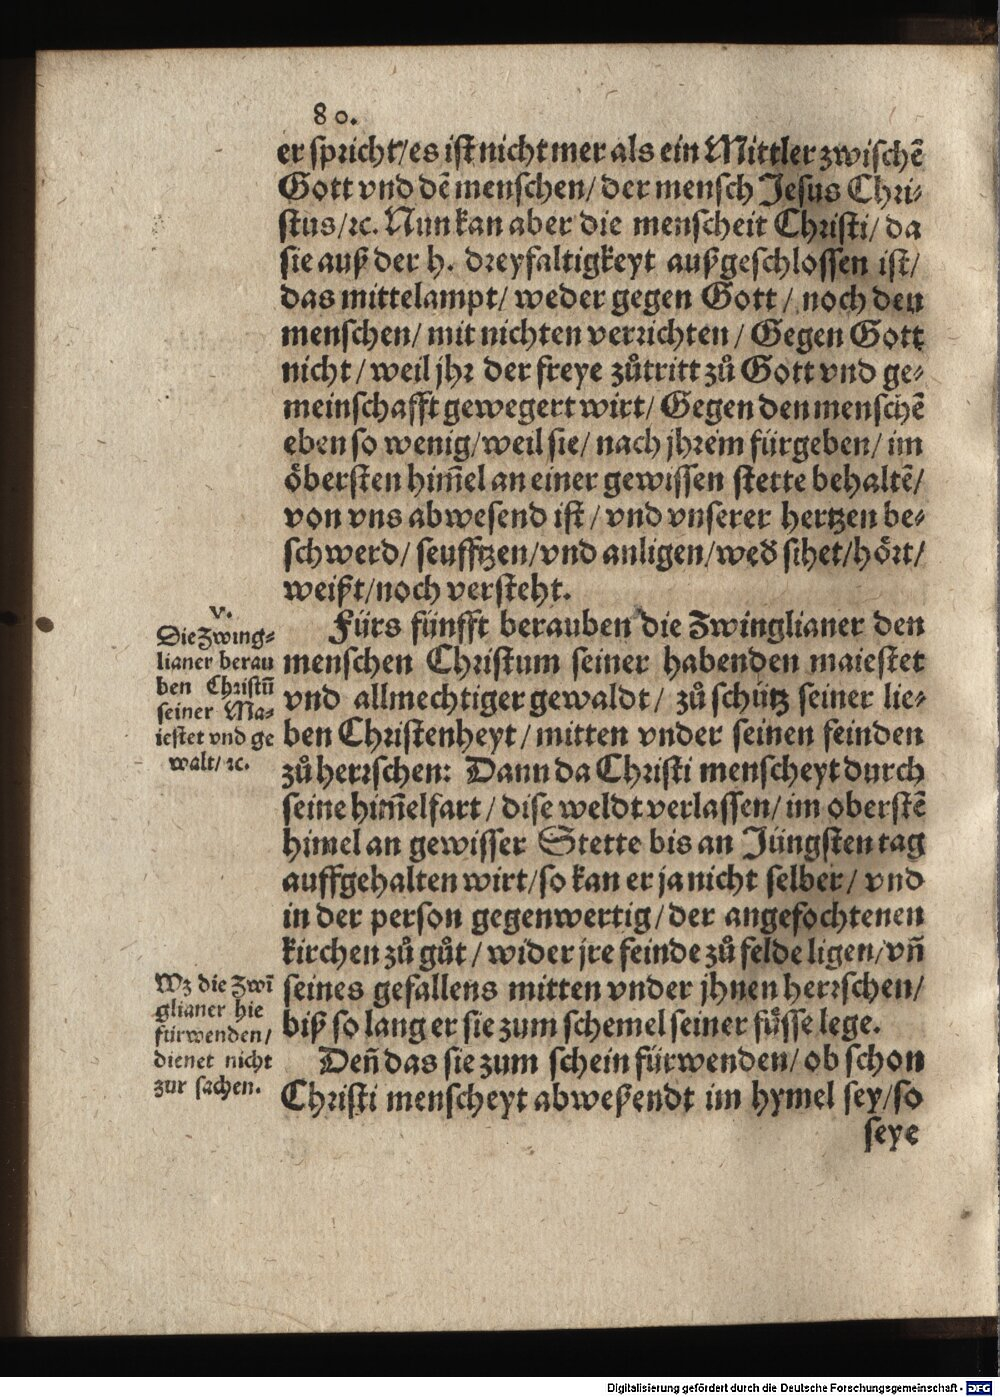 80.
er spricht/es ist nicht mer als ein Mittler zwischẽ
Gott vnd dẽ menschen/ der mensch Jesus Chri⸗
stus/ ꝛc. Nun kan aber die menscheit Christi/ da
sie auß der h. dreyfaltigkeyt außgeschlossen ist/
das mittelampt/ weder gegen Gott / noch den
menschen/ mit nichten verrichten / Gegen Gott
nicht / weil jhr der freye zůtritt zů Gott vnd ge⸗
meinschafft gewegert wirt/ Gegen den menschẽ
eben so wenig/weil sie/ nach jhrem fürgeben/ im
öbersten him̃el an einer gewissen stette behaltẽ/
von vns abwesend ist / vnd vnserer hertzen be⸗
schwerd/ seufftzen/vnd anligen/wed̕ sihet/hört/
weißt/noch versteht.
v.
Die Zwing⸗
lianer berau
ben Christũ
seiner Ma⸗
iestet vnd ge
walt/ ꝛc.
Fürs fünfft berauben die Zwinglianer den
menschen Christum seiner habenden maiestet
vnd allmechtiger gewaldt/ zů schütz seiner lie⸗
ben Christenheyt / mitten vnder seinen feinden
zů herrschen: Dann da Christi menscheyt durch
seine him̃elfart / dise weldt verlassen/ im oberstẽ
himel an gewisser Stette bis an Jüngsten tag
auffgehalten wirt/so kan er ja nicht selber/ vnd
in der person gegenwertig/der angefochtenen
kirchen zů gůt / wider jre feinde zů felde ligen/vñ
seines gefallens mitten vnder jhnen herrschen/
biß so lang er sie zum schemel seiner fůsse lege.
Wz die Zwĩ
glianer hie
fürwenden/
dienet nicht
zur sachen.
Deñ das sie zum schein fürwenden/ ob schon
Christi menscheyt abweßendt im hymel sey/so
seye
Digitalisierung gefördert durch die Deutsche Forschungsgemeinschaft - DFG